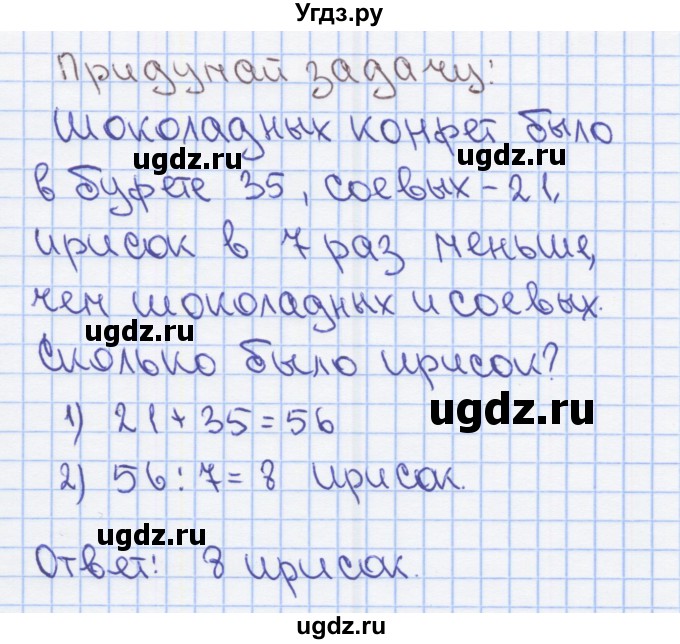 Угдз.ру
Придумай задачу:
Шоколадных конфет было
ugdz.ru ugdz.ru
в буфете 35, соевых - 21,
ирисок в 7 раз меньше,
чем шоколадных и соевых.
ugdz.ru
Сколько было ирисок?
1) 21 + 35 = 56
ugdz.ru
2) 56 : 7 = 8 ирисок.
ugdz.ru
Ответ: 8 ирисок.
ugdz.ru